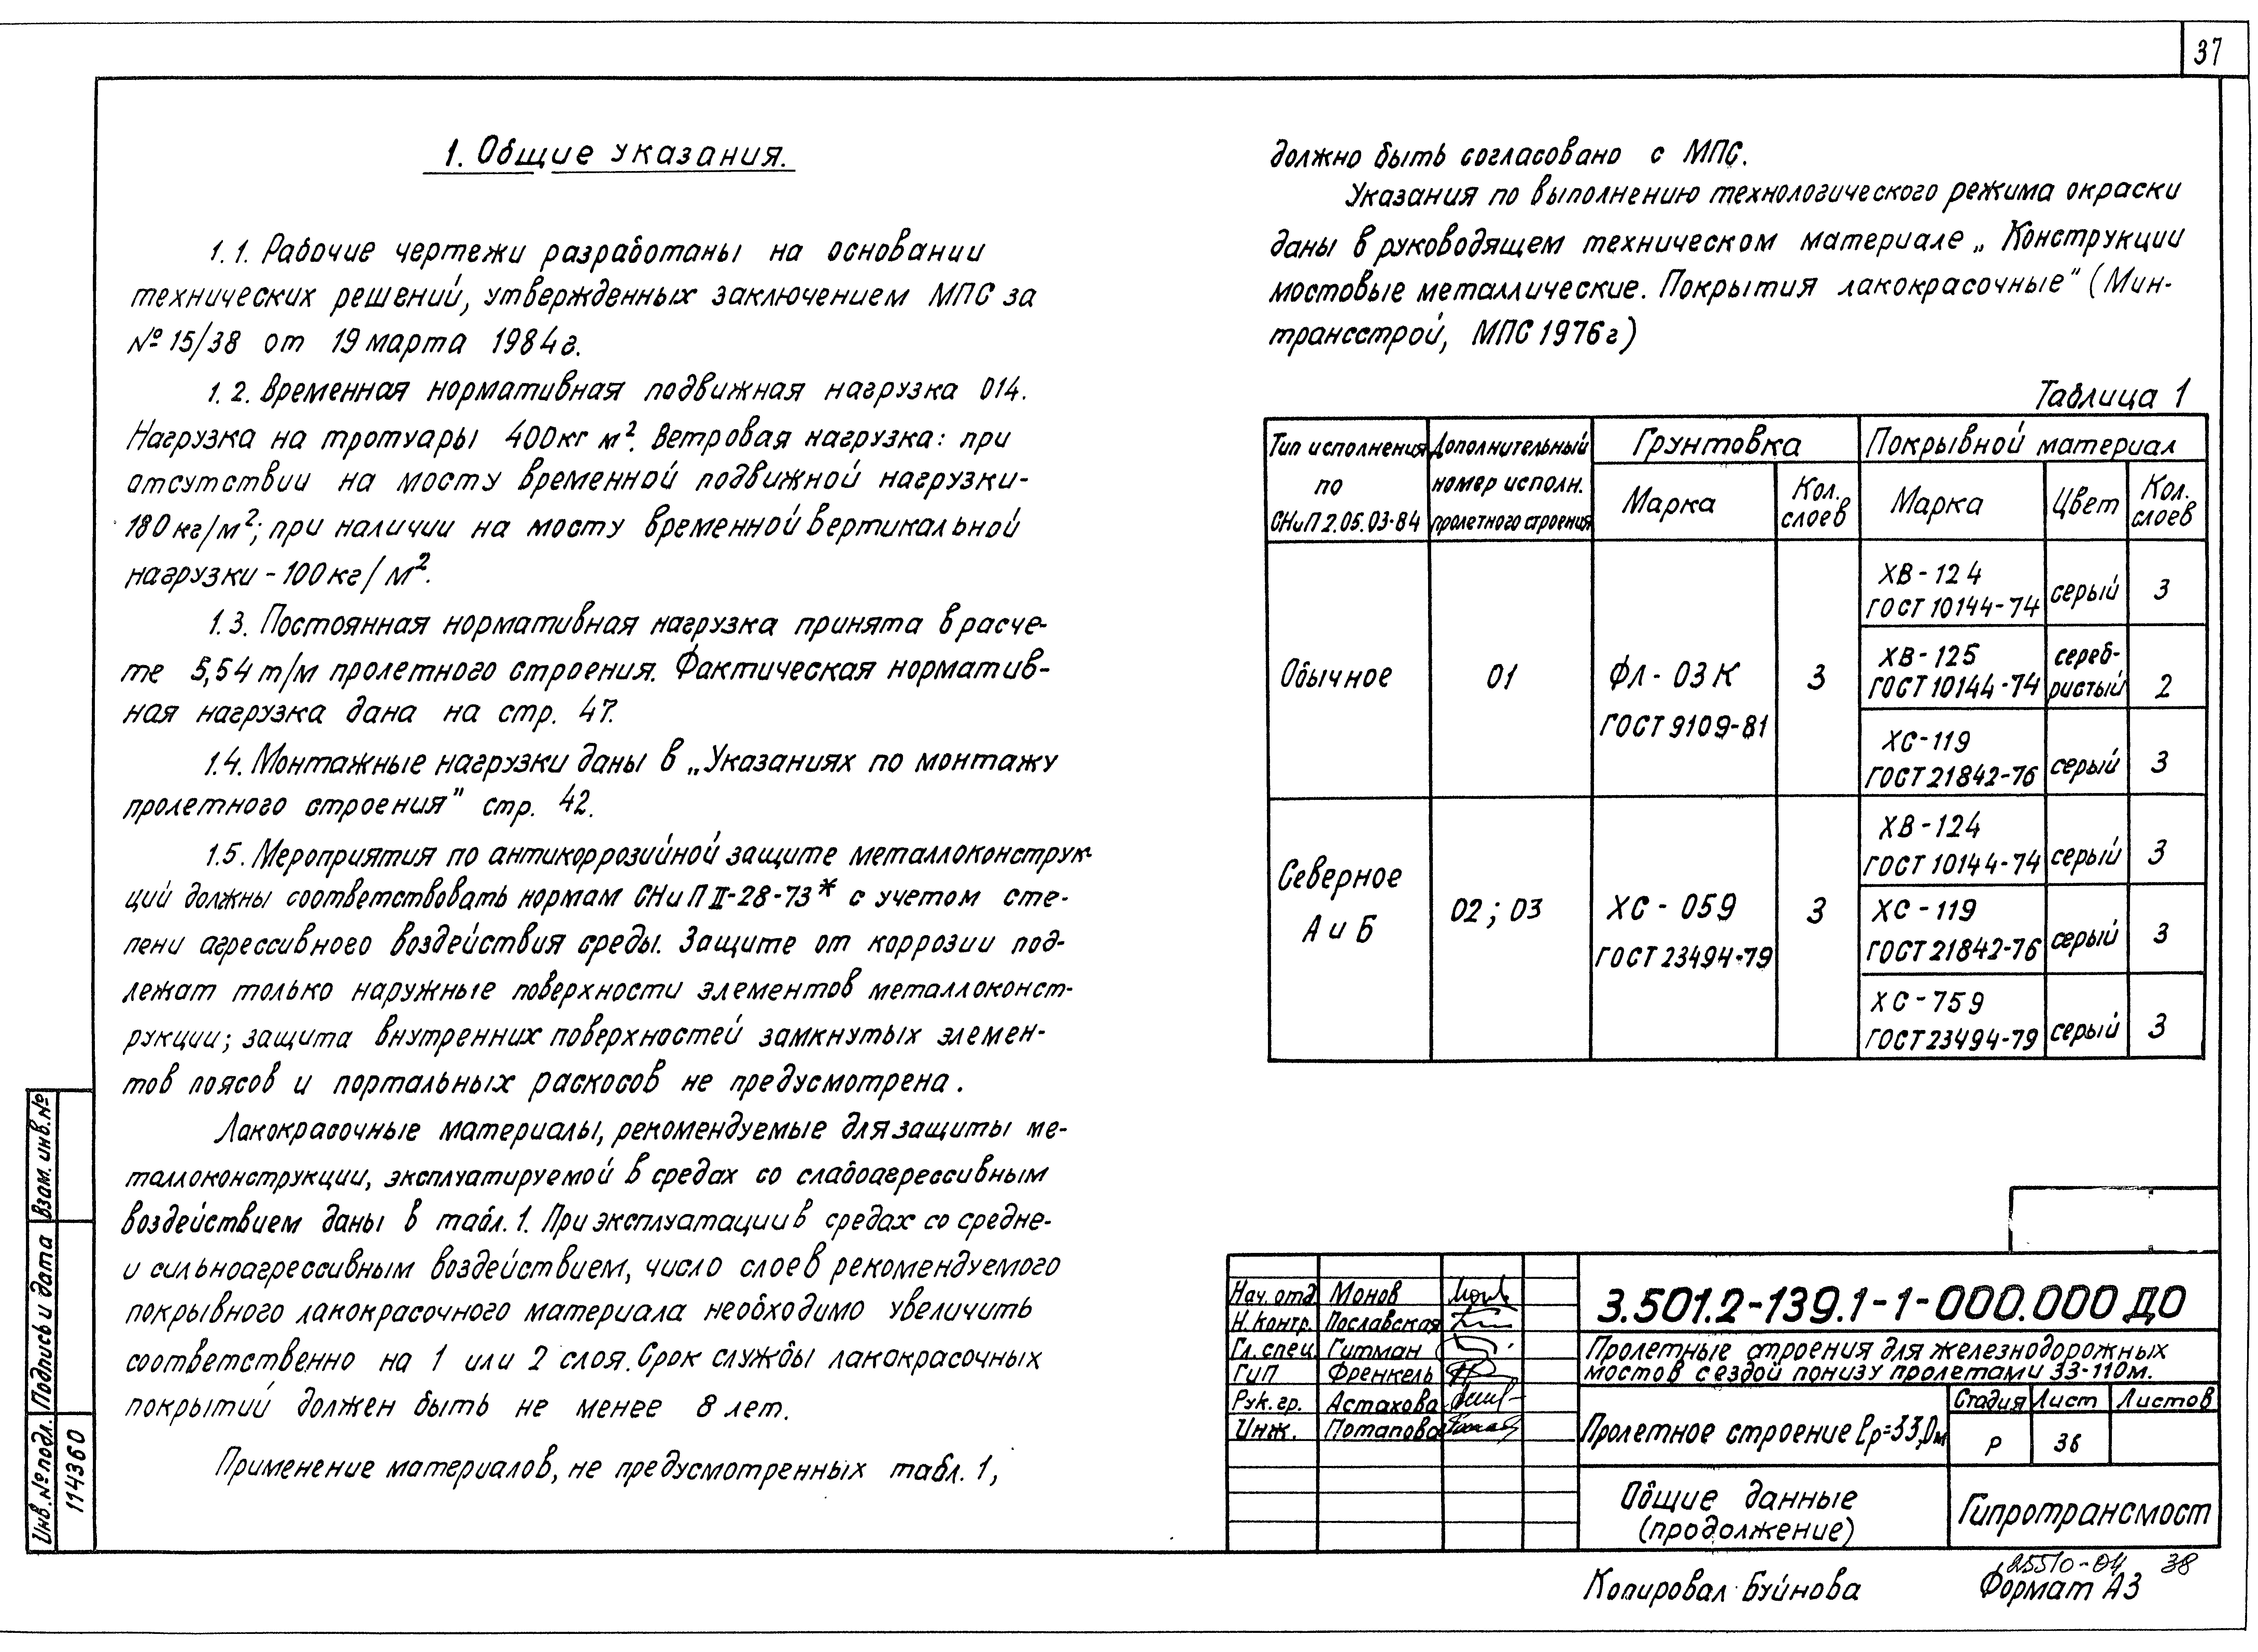 37
1. Общие указания.
1.1. Рабочие чертежи разработаны на основании
технических решений, утвержденных заключением МПС за
№ 15/38 от 19 марта 1984г.
1.2. Временная нормативная подвижная нагрузка 014.
Нагрузка на тротуары 400кг м². Ветровая нагрузка: при
отсутствии на мосту временной подвижной нагрузки-
180кг/м²; при наличии на мосту временной вертикальной
нагрузки - 100кг/м².
1.3. Постоянная нормативная нагрузка принята в расче-
те 5,54 т/м пролетного строения. Фактическая норматив-
ная нагрузка дана на стр. 47.
1.4. Монтажные нагрузки даны в „Указаниях по монтажу
пролетного строения" стр. 42.
1.5. Мероприятия по антикоррозийной защите металлоконструк-
ций должны соответствовать нормам СНиП II-28-73* с учетом сте-
пени агрессивного воздействия среды. Защите от коррозии под-
лежат только наружные поверхности элементов металлоконст-
рукции; защита внутренних поверхностей замкнутых элемен-
тов поясов и портальных раскосов не предусмотрена.
Лакокрасочные материалы, рекомендуемые для защиты ме-
таллоконструкции, эксплуатируемой в средах со слабоагрессивным
воздействием даны в табл. 1. При эксплуатации в средах со средне-
и сильноагрессивным воздействием, число слоев рекомендуемого
покрывного лакокрасочного материала необходимо увеличить
соответственно на 1 или 2 слоя. Срок службы лакокрасочных
покрытий должен быть не менее 8 лет.
Применение материалов, не предусмотренных табл. 1,
должно быть согласовано с МПС.
Указания по выполнению технологического режима окраски
даны в руководящем техническом материале „Конструкции
мостовые металлические. Покрытия лакокрасочные" (Мин-
трансстрой, МПС 1976г)
Таблица 1
Тип исполнения по СНиП 2.05.03-84 Дополнительный номер исполн. пролетного строения Грунтовка Покрывной материал
Марка Кол. слоев Марка Цвет Кол. слоев
Обычное 01 ФЛ-03К ГОСТ 9109-81 3 ХВ-124 ГОСТ 10144-74 серый 3
ХВ-125 ГОСТ 10144-74 сереб-ристый 2
ХС-119 ГОСТ 21842-76 серый 3
Северное А и Б 02; 03 ХС-059 ГОСТ 23494-79 3 ХВ-124 ГОСТ 10144-74 серый 3
ХС-119 ГОСТ 21842-76 серый 3
ХС-759 ГОСТ 23494-79 серый 3
Взам. инв.№
Подпись и дата
Инв. № подл. 114360
Нач. отд. Монов
Н. контр. Пославская
Гл. спец. Гитман
ГиП Френкель
Рук. гр. Астахова
Инж. Потапова
3.501.2-139.1-1-000.000 ДО
Пролетные строения для железнодорожных
мостов с ездой понизу пролетами 33-110м.
Пролетное строение ℓр=33,0м
Стадия Лист Листов
Р 36
Общие данные
(продолжение)
Гипротрансмост
25510-04 38
Копировал Буйнова Формат А3